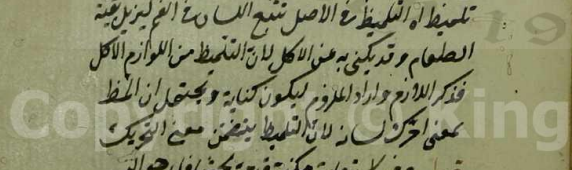 تلميظ اه التلميظ في الاصل تتبع اللسان في الفم ليزيل بقية
الطعام وقد يكنى به عن الاكل لان التلميظ من لوازم الاكل
فذكر اللازم واراد الملزوم ليكون كناية ويحتمل ان المظ
بمعنى احرك لسانه لان التلميظ يتضمن معنى التحريك